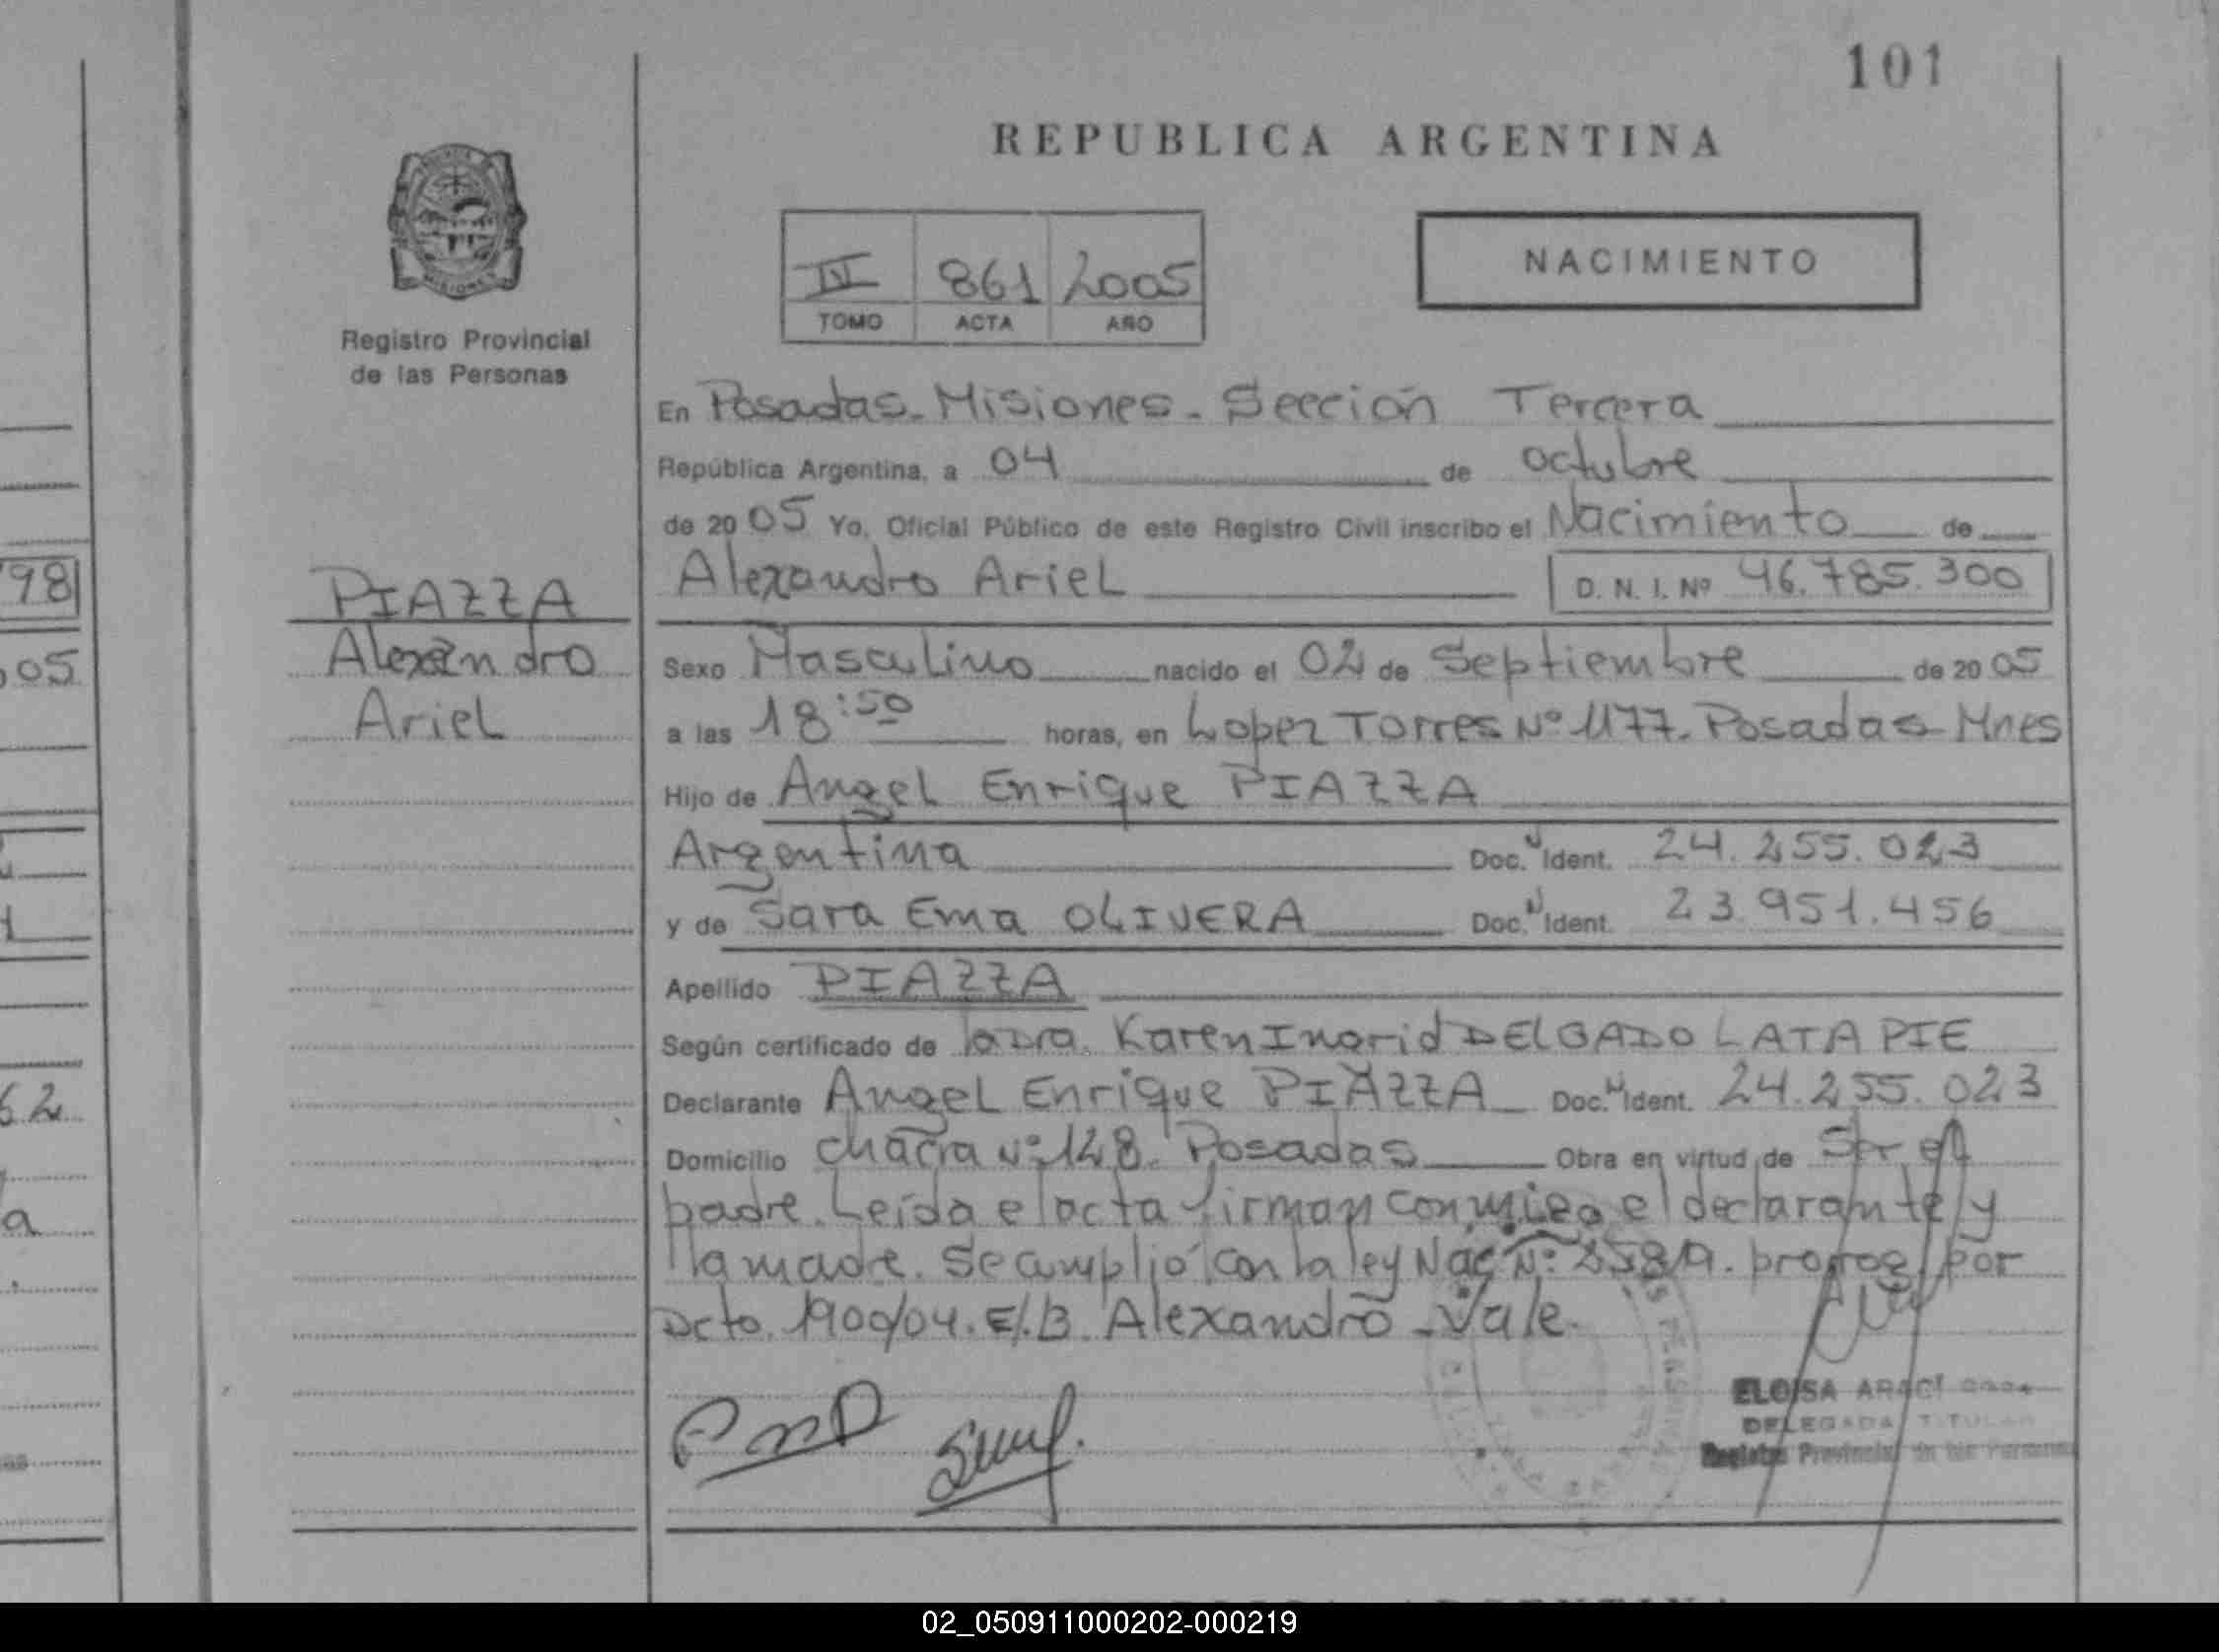 101
REPUBLICA ARGENTINA
MISIONES
IV 861 2005
TOMO ACTA AÑO
NACIMIENTO
Registro Provincial
de las Personas
En Posadas - Misiones - Sección Tercera
República Argentina, a 04 de octubre
de 20 05 Yo, Oficial Público de este Registro Civil inscribo el Nacimiento de
98
PIAZZA
Alexandro Ariel D. N. I. Nº 46.785.300
05
Alexandro
Sexo Masculino nacido el 02 de Septiembre de 20 05
Ariel
a las 18:50 horas, en Lopez Torres Nº 1177. Posadas - Mnes
Hijo de Angel Enrique PIAZZA
Argentina Doc. N Ident. 24.255.023
y de Sara Ema OLIVERA Doc. N Ident. 23.951.456
Apellido PIAZZA
Según certificado de la Dra. Karen Ingrid DELGADO LATAPIE
62
Declarante Angel Enrique PIAZZA Doc. N Ident. 24.255.023
Domicilio chacra Nº 148. Posadas Obra en virtud de Ser el
a
padre. Leída el acta firman conmigo el declarante y
la madre. Se cumplió con la ley Nac Nº: prorrog. por
Dcto. 1900/04. E/.B. Alexandro - Vale.
ELOISA
DELEGADA TITULAR
Registro Provincial de las Personas
02_050911000202-000219